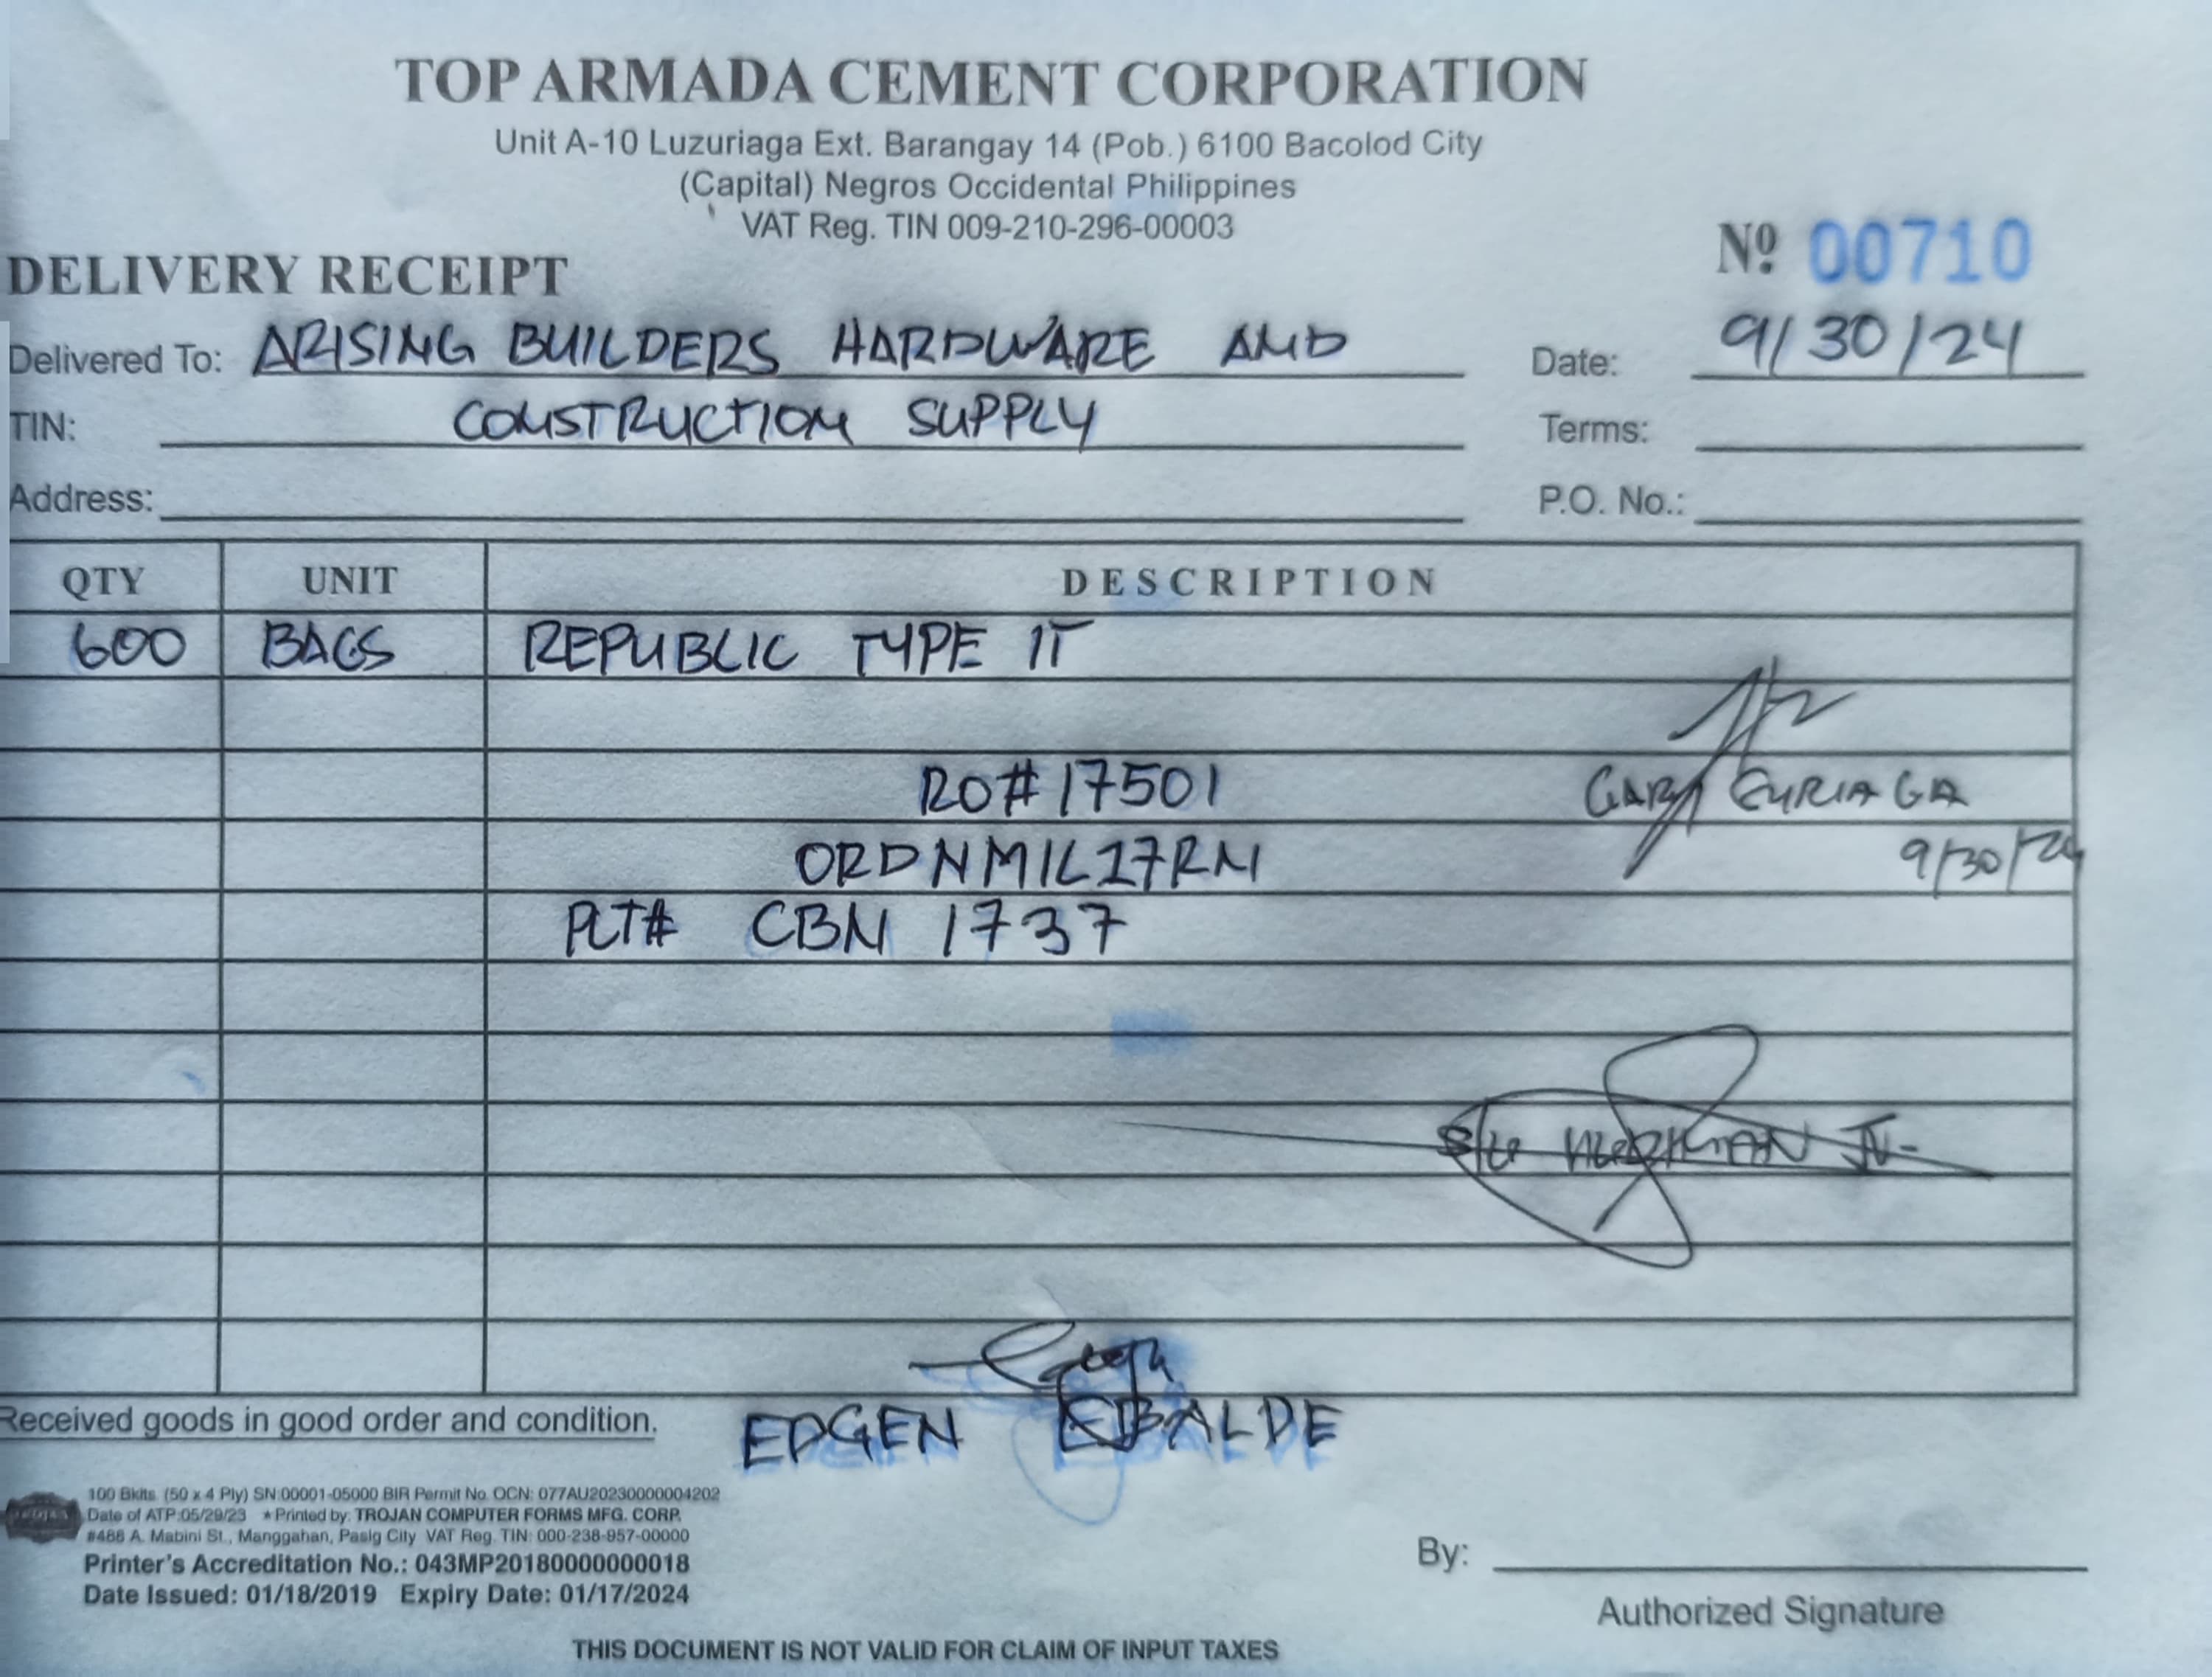 TOP ARMADA CEMENT CORPORATION
Unit A-10 Luzuriaga Ext. Barangay 14 (Pob.) 6100 Bacolod City
(Capital) Negros Occidental Philippines
VAT Reg. TIN 009-210-296-00003
Nº 00710
DELIVERY RECEIPT
Delivered To: ARISING BUILDERS HARDWARE AND Date: 9/30/24
TIN: CONSTRUCTION SUPPLY Terms:
Address: P.O. No.:
QTY UNIT DESCRIPTION
600 BAGS REPUBLIC TYPE 1T
RO# 17501 GARY EURIAGA
ORDNMIL17RN1 9/30/24
PLT# CBN 1737
JR.
EDGEN EBALDE
Received goods in good order and condition.
100 Bklts. (50 x 4 Ply) SN:00001-05000 BIR Permit No. OCN: 077AU20230000004202
Date of ATP:05/29/23 ★ Printed by: TROJAN COMPUTER FORMS MFG. CORP.
#488 A. Mabini St., Manggahan, Pasig City VAT Reg. TIN: 000-238-957-00000
Printer's Accreditation No.: 043MP20180000000018
Date Issued: 01/18/2019 Expiry Date: 01/17/2024
By:
Authorized Signature
THIS DOCUMENT IS NOT VALID FOR CLAIM OF INPUT TAXES